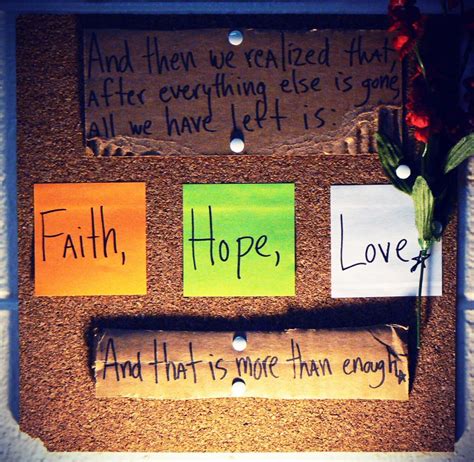 And then we realized that,
after everything else is gone,
all we have left is:
Faith, Hope, Love.
And that is more than enough.